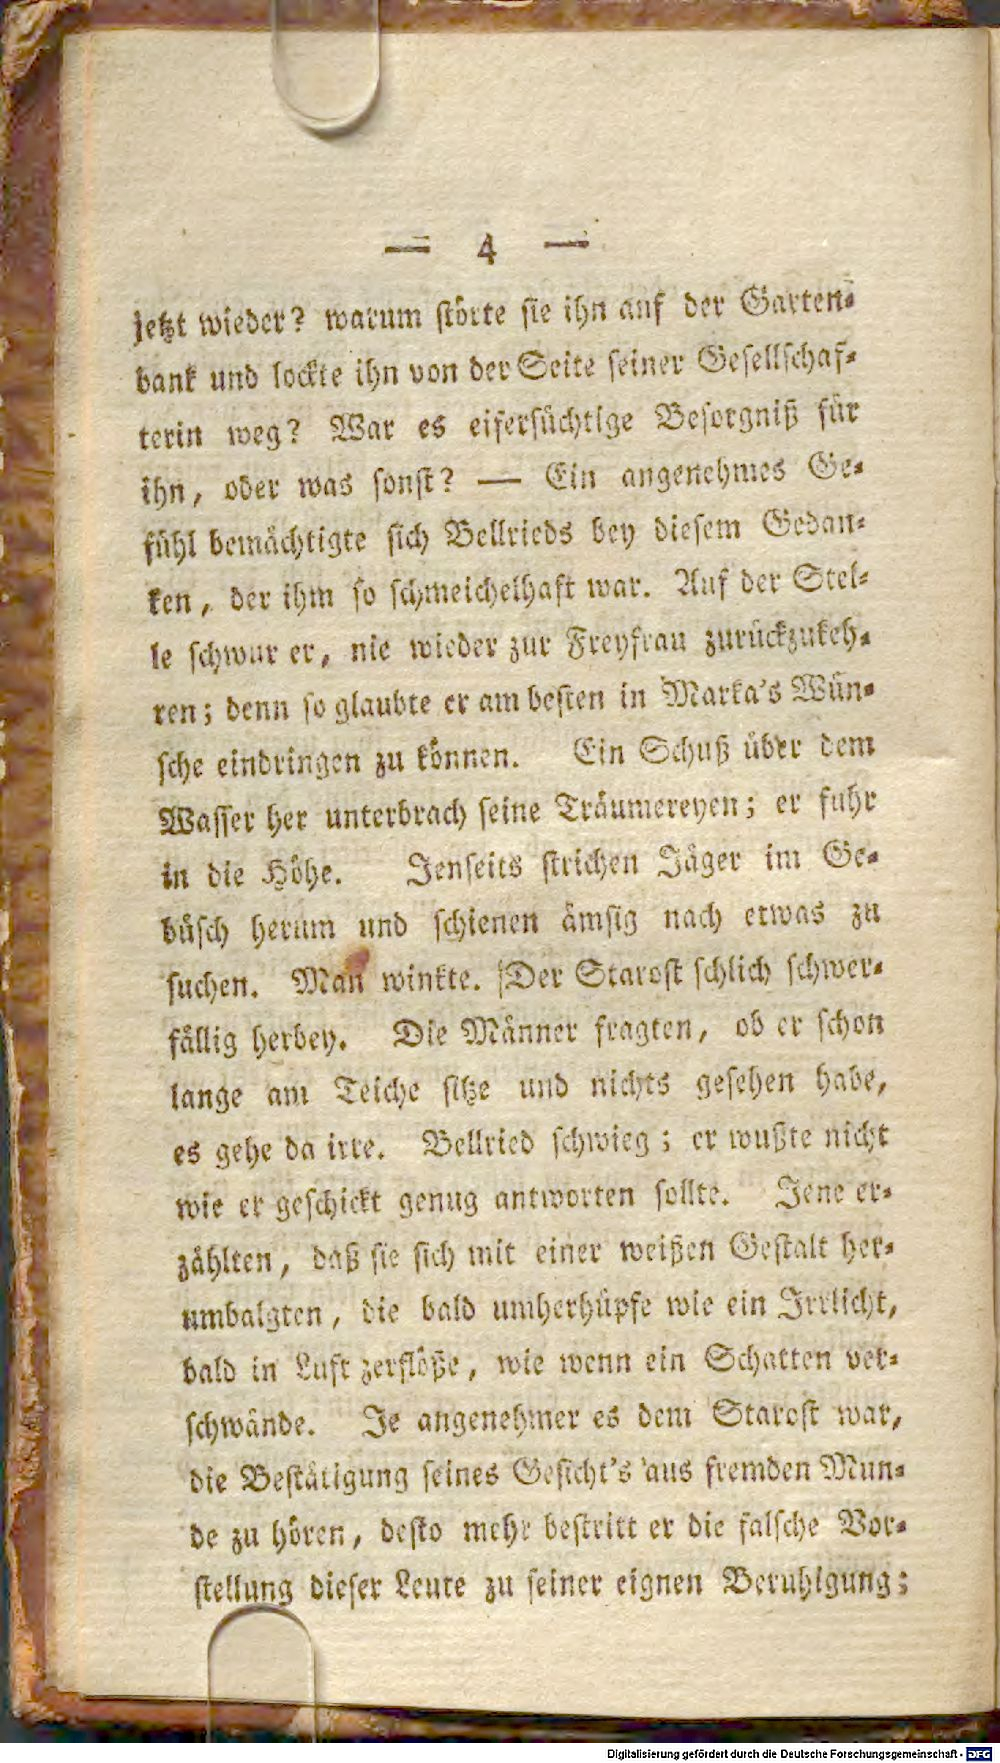 — 4 —
jetzt wieder? warum störte sie ihn auf der Garten-
bank und lockte ihn von der Seite seiner Gesellschaf-
terin weg? War es eifersüchtige Besorgniß für
ihn, oder was sonst? — Ein angenehmes Ge-
fühl bemächtigte sich Bellrieds bey diesem Gedan-
ken, der ihm so schmeichelhaft war. Auf der Stel-
le schwur er, nie wieder zur Freyfrau zurückzukeh-
ren; denn so glaubte er am besten in Marka's Wün-
sche eindringen zu können. Ein Schuß über dem
Wasser her unterbrach seine Träumereyen; er fuhr
in die Höhe. Jenseits strichen Jäger im Ge-
büsch herum und schienen ämsig nach etwas zu
suchen. Man winkte. Der Starost schlich schwer-
fällig herbey. Die Männer fragten, ob er schon
lange am Teiche sitze und nichts gesehen habe,
es gehe da irre. Bellried schwieg; er wußte nicht
wie er geschickt genug antworten sollte. Jene er-
zählten, daß sie sich mit einer weißen Gestalt her-
umbalgten, die bald umherhüpfe wie ein Irrlicht,
bald in Luft zerflöße, wie wenn ein Schatten ver-
schwände. Je angenehmer es dem Starost war,
die Bestätigung seines Gesicht's aus fremden Mun-
de zu hören, desto mehr bestritt er die falsche Vor-
stellung dieser Leute zu seiner eignen Beruhigung;
Digitalisierung gefördert durch die Deutsche Forschungsgemeinschaft - DFG